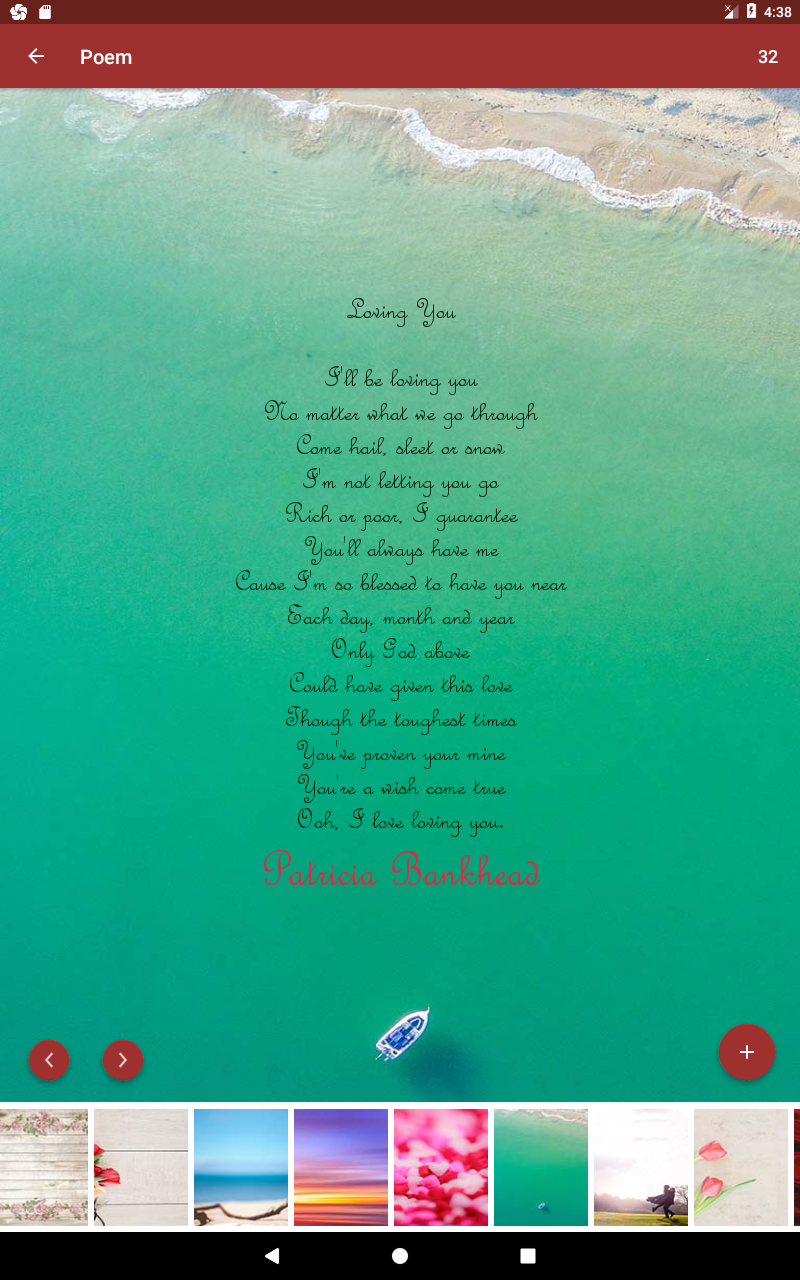 4:38
Poem
32
Loving You
I'll be loving you
No matter what we go through
Come hail, sleet or snow
I'm not letting you go
Rich or poor, I guarantee
You'll always have me
Cause I'm so blessed to have you near
Each day, month and year
Only God above
Could have given this love
Though the toughest times
You've proven your mine
You're a wish come true
Ooh, I love loving you.
Patricia Bankhead